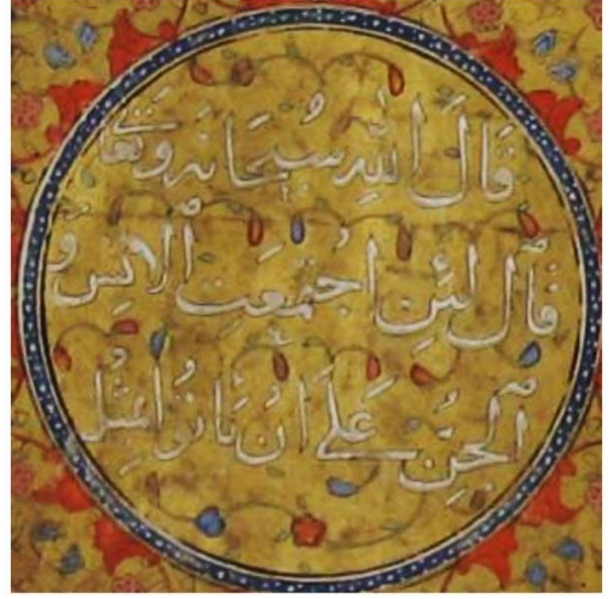 قَالَ اللهِ سُبْحَانَه وَتَعَالى
قآل لَئِنِ اجْتَمَعَتِ الانِس وَ
الجِنِّ عَلَى انْ يَاتُوا بمِثْلِ